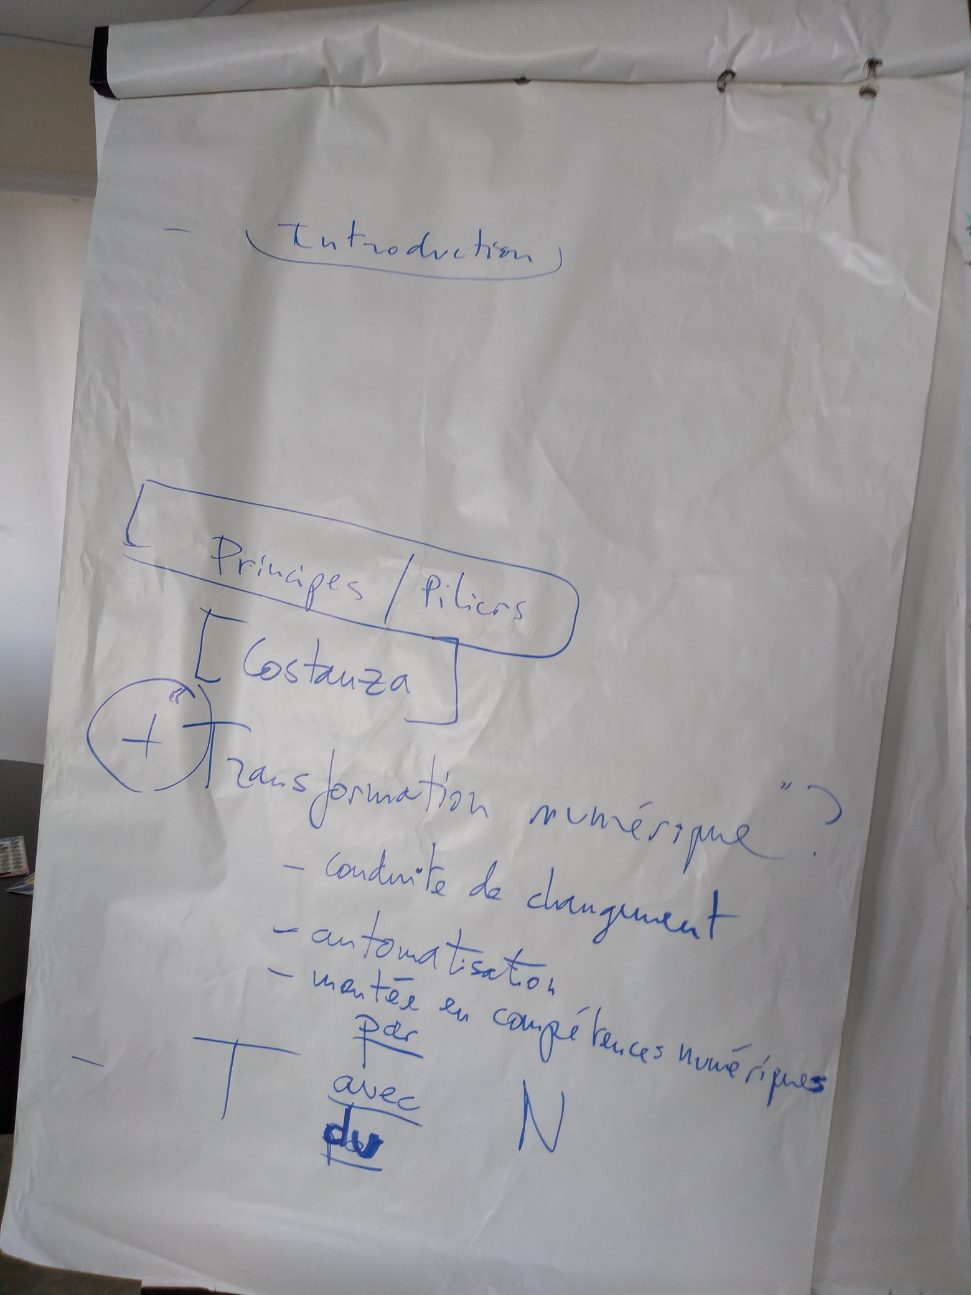 - Introduction
Principes / Piliers
[Costanza]
+ "Transformation numérique" ?
- conduite de changement
- automatisation
- montée en compétences numériques
par
- T avec N
du